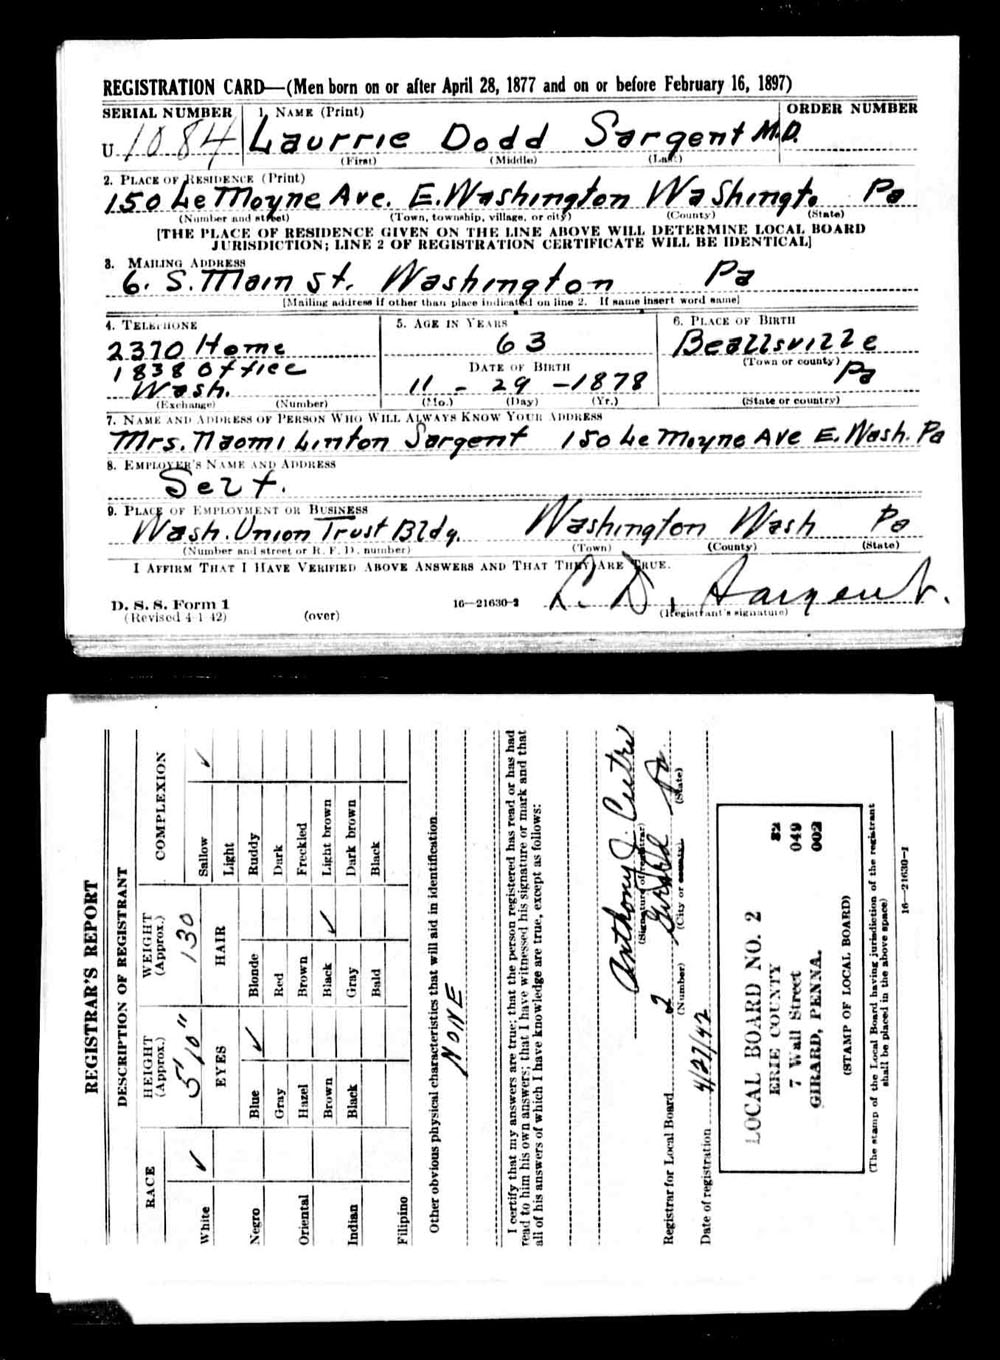 REGISTRATION CARD—(Men born on or after April 28, 1877 and on or before February 16, 1897)
SERIAL NUMBER 1. NAME (Print) ORDER NUMBER
U 1084 Laurrie Dodd Sargent M.D.
(First) (Middle) (Last)
2. PLACE OF RESIDENCE (Print)
150 Le Moyne Ave. E. Washington Washingt. Pa
(Number and street) (Town, township, village, or city) (County) (State)
[THE PLACE OF RESIDENCE GIVEN ON THE LINE ABOVE WILL DETERMINE LOCAL BOARD
JURISDICTION; LINE 2 OF REGISTRATION CERTIFICATE WILL BE IDENTICAL]
3. MAILING ADDRESS
6. S. Main St. Washington Pa
[Mailing address if other than place indicated on line 2. If same insert word same]
4. TELEPHONE 5. AGE IN YEARS 6. PLACE OF BIRTH
2370 Home 63 Beallsville
1838 Office DATE OF BIRTH (Town or county)
Wash. 11 - 29 - 1878 Pa
(Exchange) (Number) (Mo.) (Day) (Yr.) (State or country)
7. NAME AND ADDRESS OF PERSON WHO WILL ALWAYS KNOW YOUR ADDRESS
Mrs. Naomi Linton Sargent 150 Le Moyne Ave E. Wash. Pa
8. EMPLOYER'S NAME AND ADDRESS
Self.
9. PLACE OF EMPLOYMENT OR BUSINESS
Wash. Union Trust Bldg. Washington Wash Pa
(Number and street or R. F. D. number) (Town) (County) (State)
I AFFIRM THAT I HAVE VERIFIED ABOVE ANSWERS AND THAT THEY ARE TRUE.
L. D. Sargent.
D. S. S. Form 1 16—21630-2 (Registrant's signature)
(Revised 4-1-42) (over)
REGISTRAR'S REPORT
DESCRIPTION OF REGISTRANT
RACE HEIGHT (Approx.) WEIGHT (Approx.) COMPLEXION
White ✓ 5' 10" 130 Sallow ✓
EYES HAIR Light
Negro Blue ✓ Blonde Ruddy
Gray Red Dark
Oriental Hazel Brown Freckled
Brown Black ✓ Light brown
Indian Black Gray Dark brown
Bald Black
Filipino
Other obvious physical characteristics that will aid in identification
NONE
I certify that my answers are true; that the person registered has read or has had
read to him his own answers; that I have witnessed his signature or mark and that
all of his answers of which I have knowledge are true, except as follows:
Anthony J.
(Signature of registrar)
Registrar for Local Board 2 Girard Pa
(Number) (City or county) (State)
Date of registration 4/27/42
LOCAL BOARD NO. 2 82
ERIE COUNTY 049
7 Wall Street 002
GIRARD, PENNA.
(STAMP OF LOCAL BOARD)
(The stamp of the Local Board having jurisdiction of the registrant
shall be placed in the above space)
16—21630-1